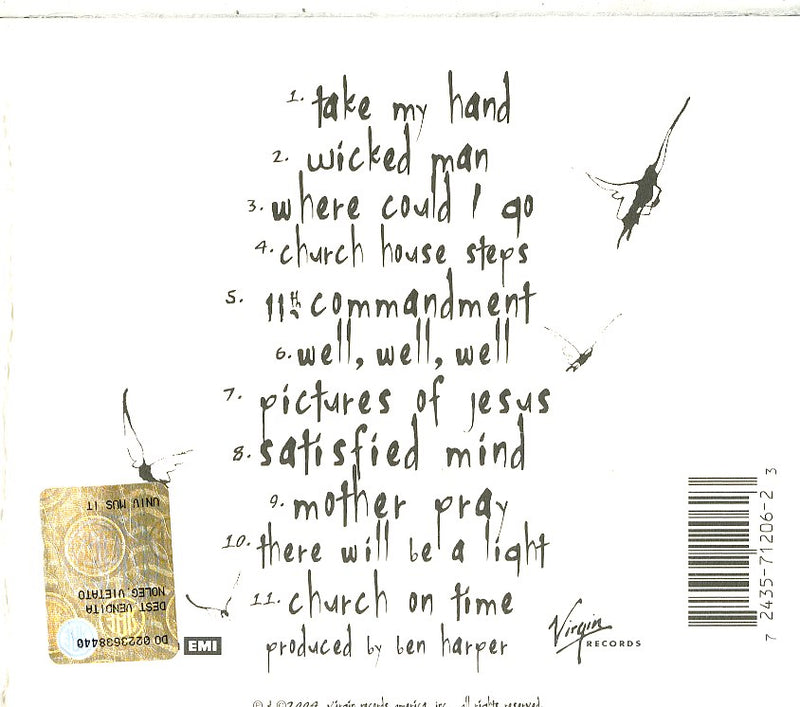 1. take my hand
2. wicked man
3. where could I go
4. church house steps
5. 11th commandment
6. well, well, well
7. pictures of jesus
8. satisfied mind
9. mother pray
10. there will be a light
11. church on time
produced by ben harper
UNIV MUS IT
DEST. VENDITA
NOLEG. VIETATO
DO 0223638440
EMI
Virgin
RECORDS
7 2435-71206-2 3
virgin records america, inc. all rights reserved.